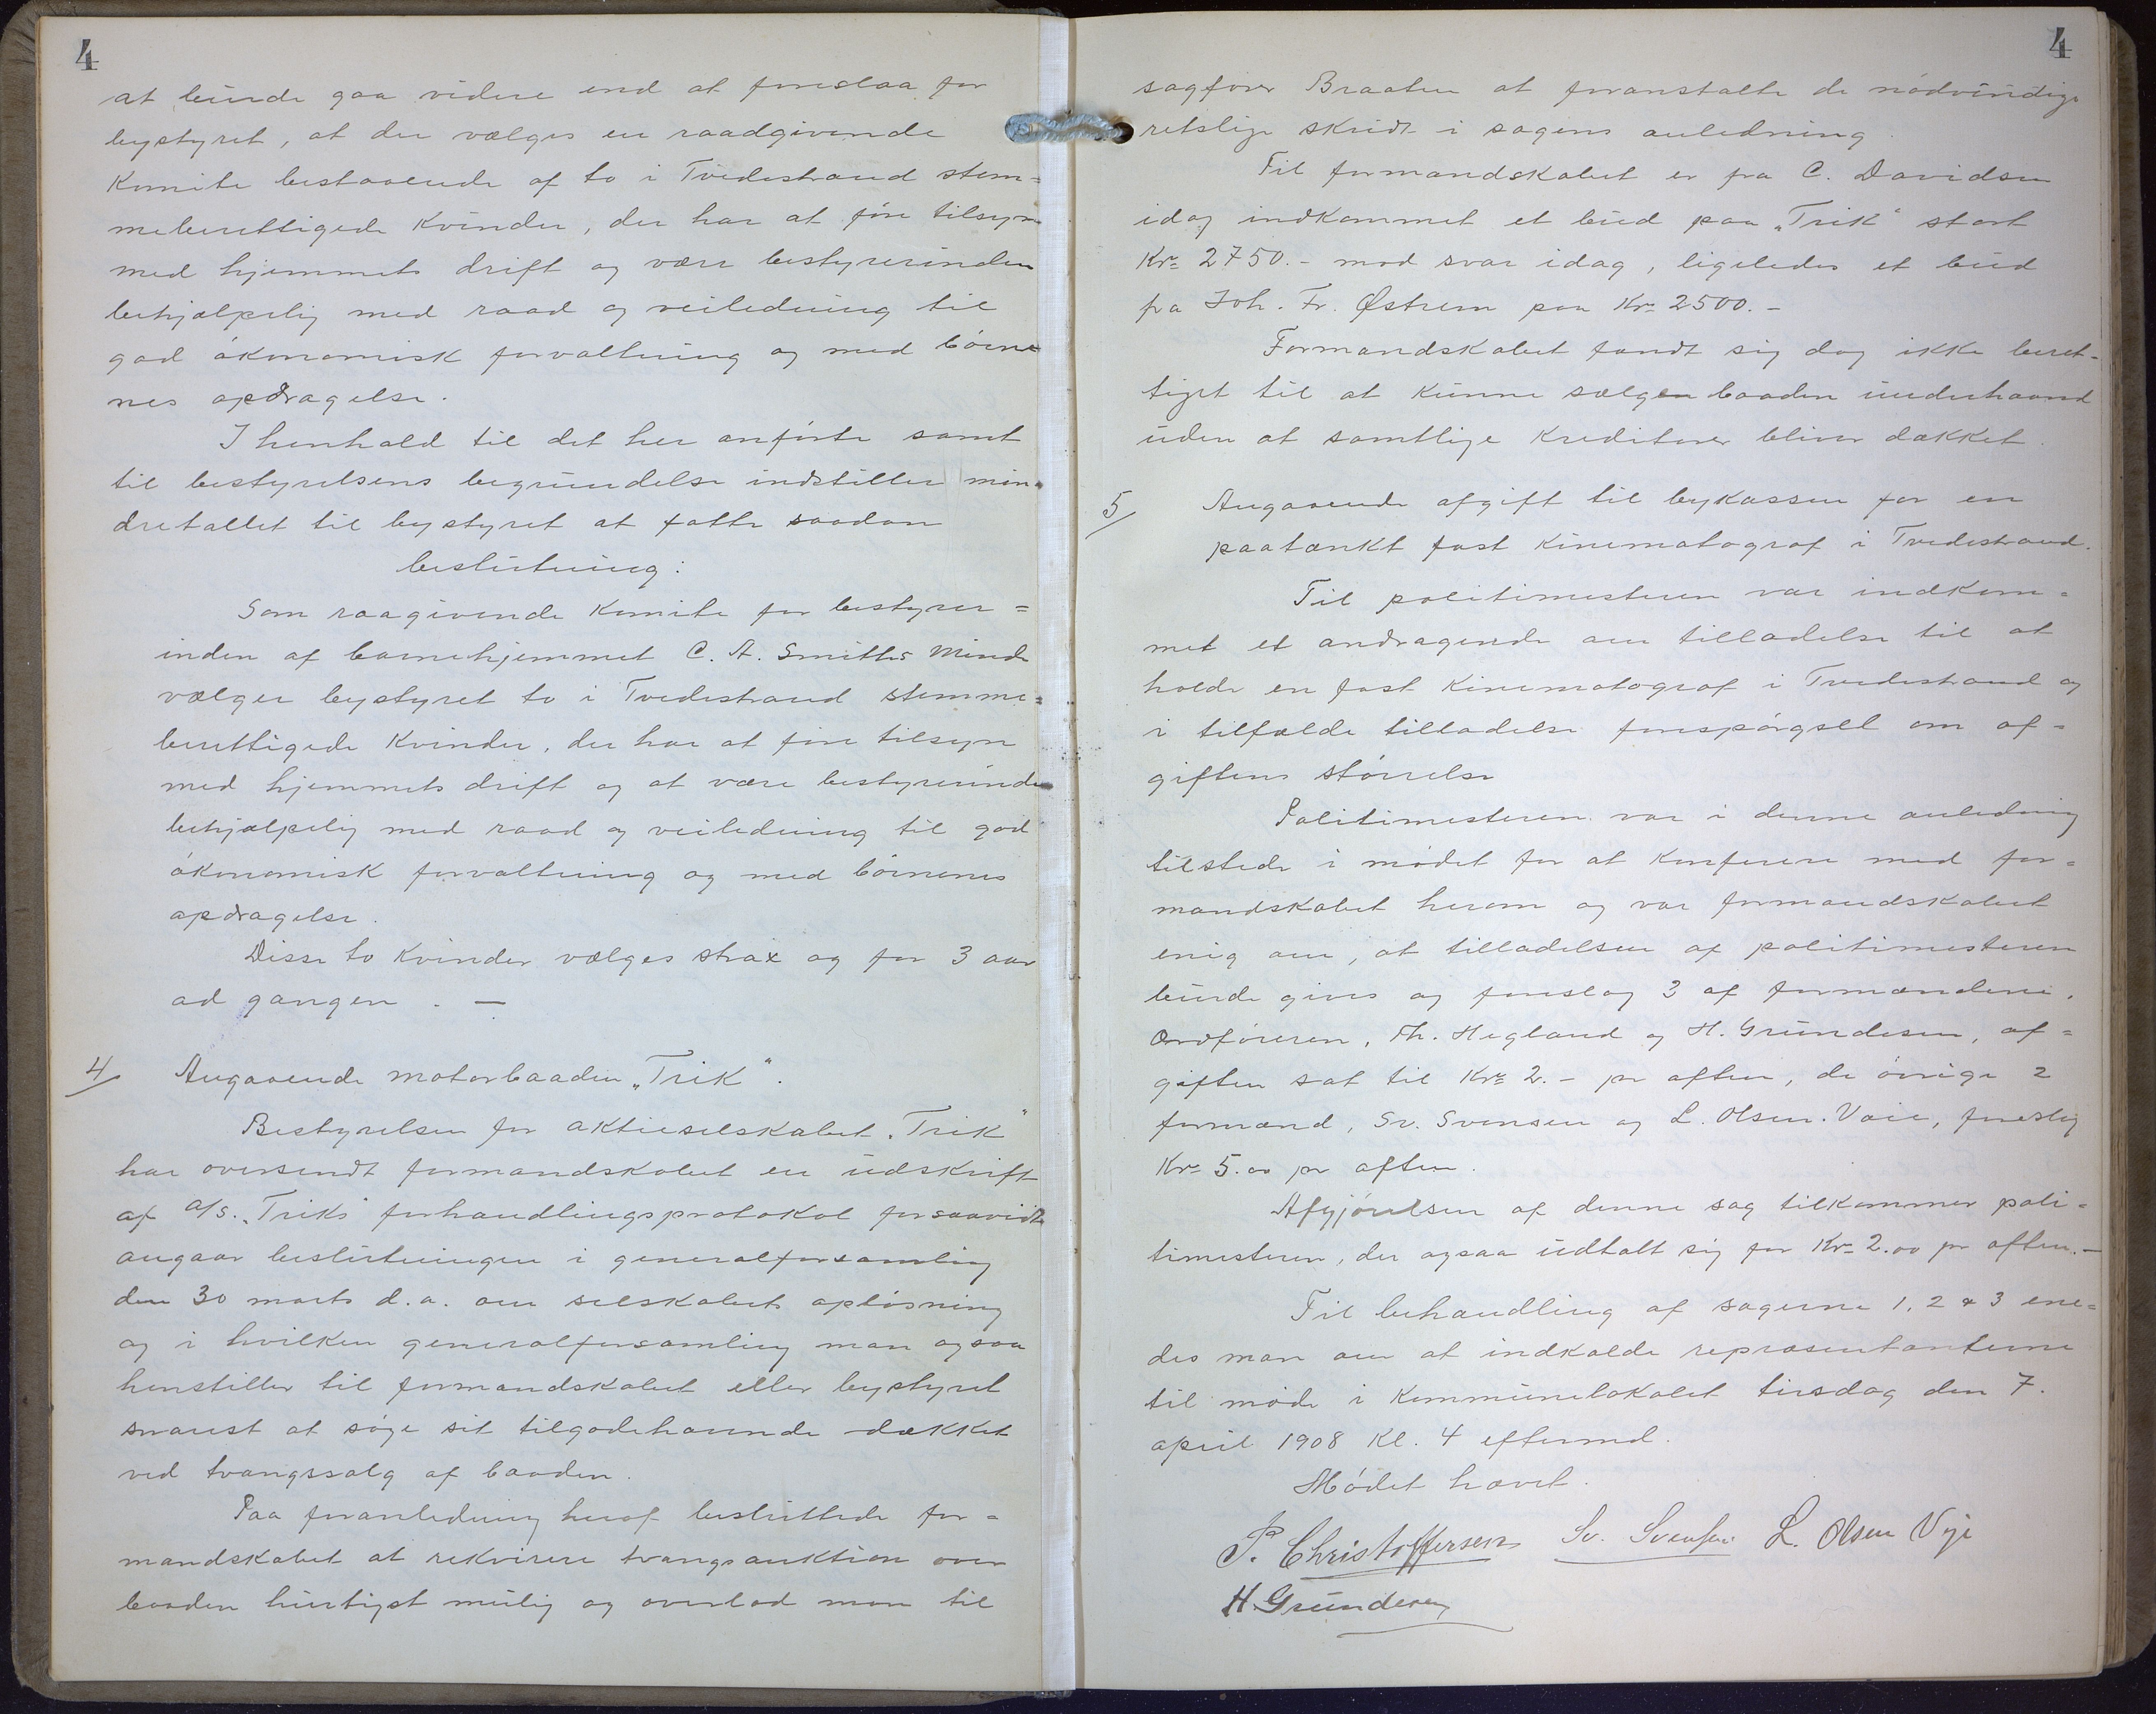 4
at burde gaa videre end at foreslaa for
bystyret, at der vælges en raadgivende
Komite bestaaende af to i Tvedestrand stem=
meberettigede Kvinder, der har at føre tilsyn
med hjemmets drift og være bestyrerinden
behjælpelig med raad og veiledning til
god økonomisk forvaltning og med børne
nes opdragelse.
I henhold til det her anførte samt
til bestyrelsens begrundelse indstiller min=
dretallet til bystyret at fatte saadan
beslutning:
Som raagivende Komite for bestyrer=
inden af barnehjemmet C. A. Smiths Minde
vælger bystyret to i Tvedestrand stemme=
berettigede Kvinder, der har at føre tilsyn
med hjemmets drift og at være bestyrerinden
behjælpelig med raad og veiledning til god
økonomisk forvaltning og med børnenes
opdragelse.
Disse to Kvinder vælges strax og for 3 aar
ad gangen. —
4/ Angaaende motorbaaden „Trik".
Bestyrelsen for aktieselskabet „Trik"
har oversendt formandskabet en udskrift
af a/s. „Triks" forhandlingsprotokol forsaavidt
angaar beslutningen i generalforsamling
den 30 marts d.a. om selskabets opløsning
og i hvilken generalforsamling man ogsaa
henstiller til formandskabet eller bystyret
snarest at søge sit tilgodehavende dækket
ved tvangssalg af baaden.
Paa foranledning heraf besluttede for=
mandskabet at rekvirere tvangsauktion over
baaden hurtigst mulig og overlod man til
4
sagfører Braaten at foranstalte de nødvendige
retslige skridt i sagens anledning.
Til formandskabet er fra C. Davidsen
idag indkommet et bud paa „Trik" stort
Kr. 2750.- mod svar idag, ligeledes et bud
fra Joh. Fr. Østrem paa Kr. 2500.-
Formandskabet fandt sig dog ikke beret=
tiget til at Kunne sælgen baaden underhaand
uden at samtlige Kreditorer bliver dækket.
5/ Angaaende afgift til bykassen for en
paatænkt fast Kinematograf i Tvedestrand.
Til politimesteren var indkom=
met et andragende om tilladelse til at
holde en fast Kinematograf i Tvedestrand og
i tilfælde tilladelse forespørgsel om af=
giftens størrelse
Politimesteren var i denne anledning
tilstede i mødet for at Konferere med for=
mandskabet herom og var formandskabet
enig om, at tilladelsen af politimesteren
burde gives og foreslog 3 af formændene,
Ordføreren, Th. Hegland og H. Grundesen, af=
giften sat til Kr. 2.- pr aften, de øvrige 2
formænd, Sv. Svensen og L. Olsen. Vaie, foreslog
Kr. 5.00 pr aften.
Afgjørelsen af denne sag tilkommer poli=
timesteren, der ogsaa udtalt sig for Kr. 2.00 pr aften.—
Til behandling af sagerne 1, 2 & 3 ene=
des man om at indkalde repræsentanterne
til møde i Kommunelokalet tirsdag den 7.
april 1908 Kl. 4 eftermd.
Mødet hævet.
P. Christoffersen Sv. Svensen L. Olsen Veje
H. Grundesen